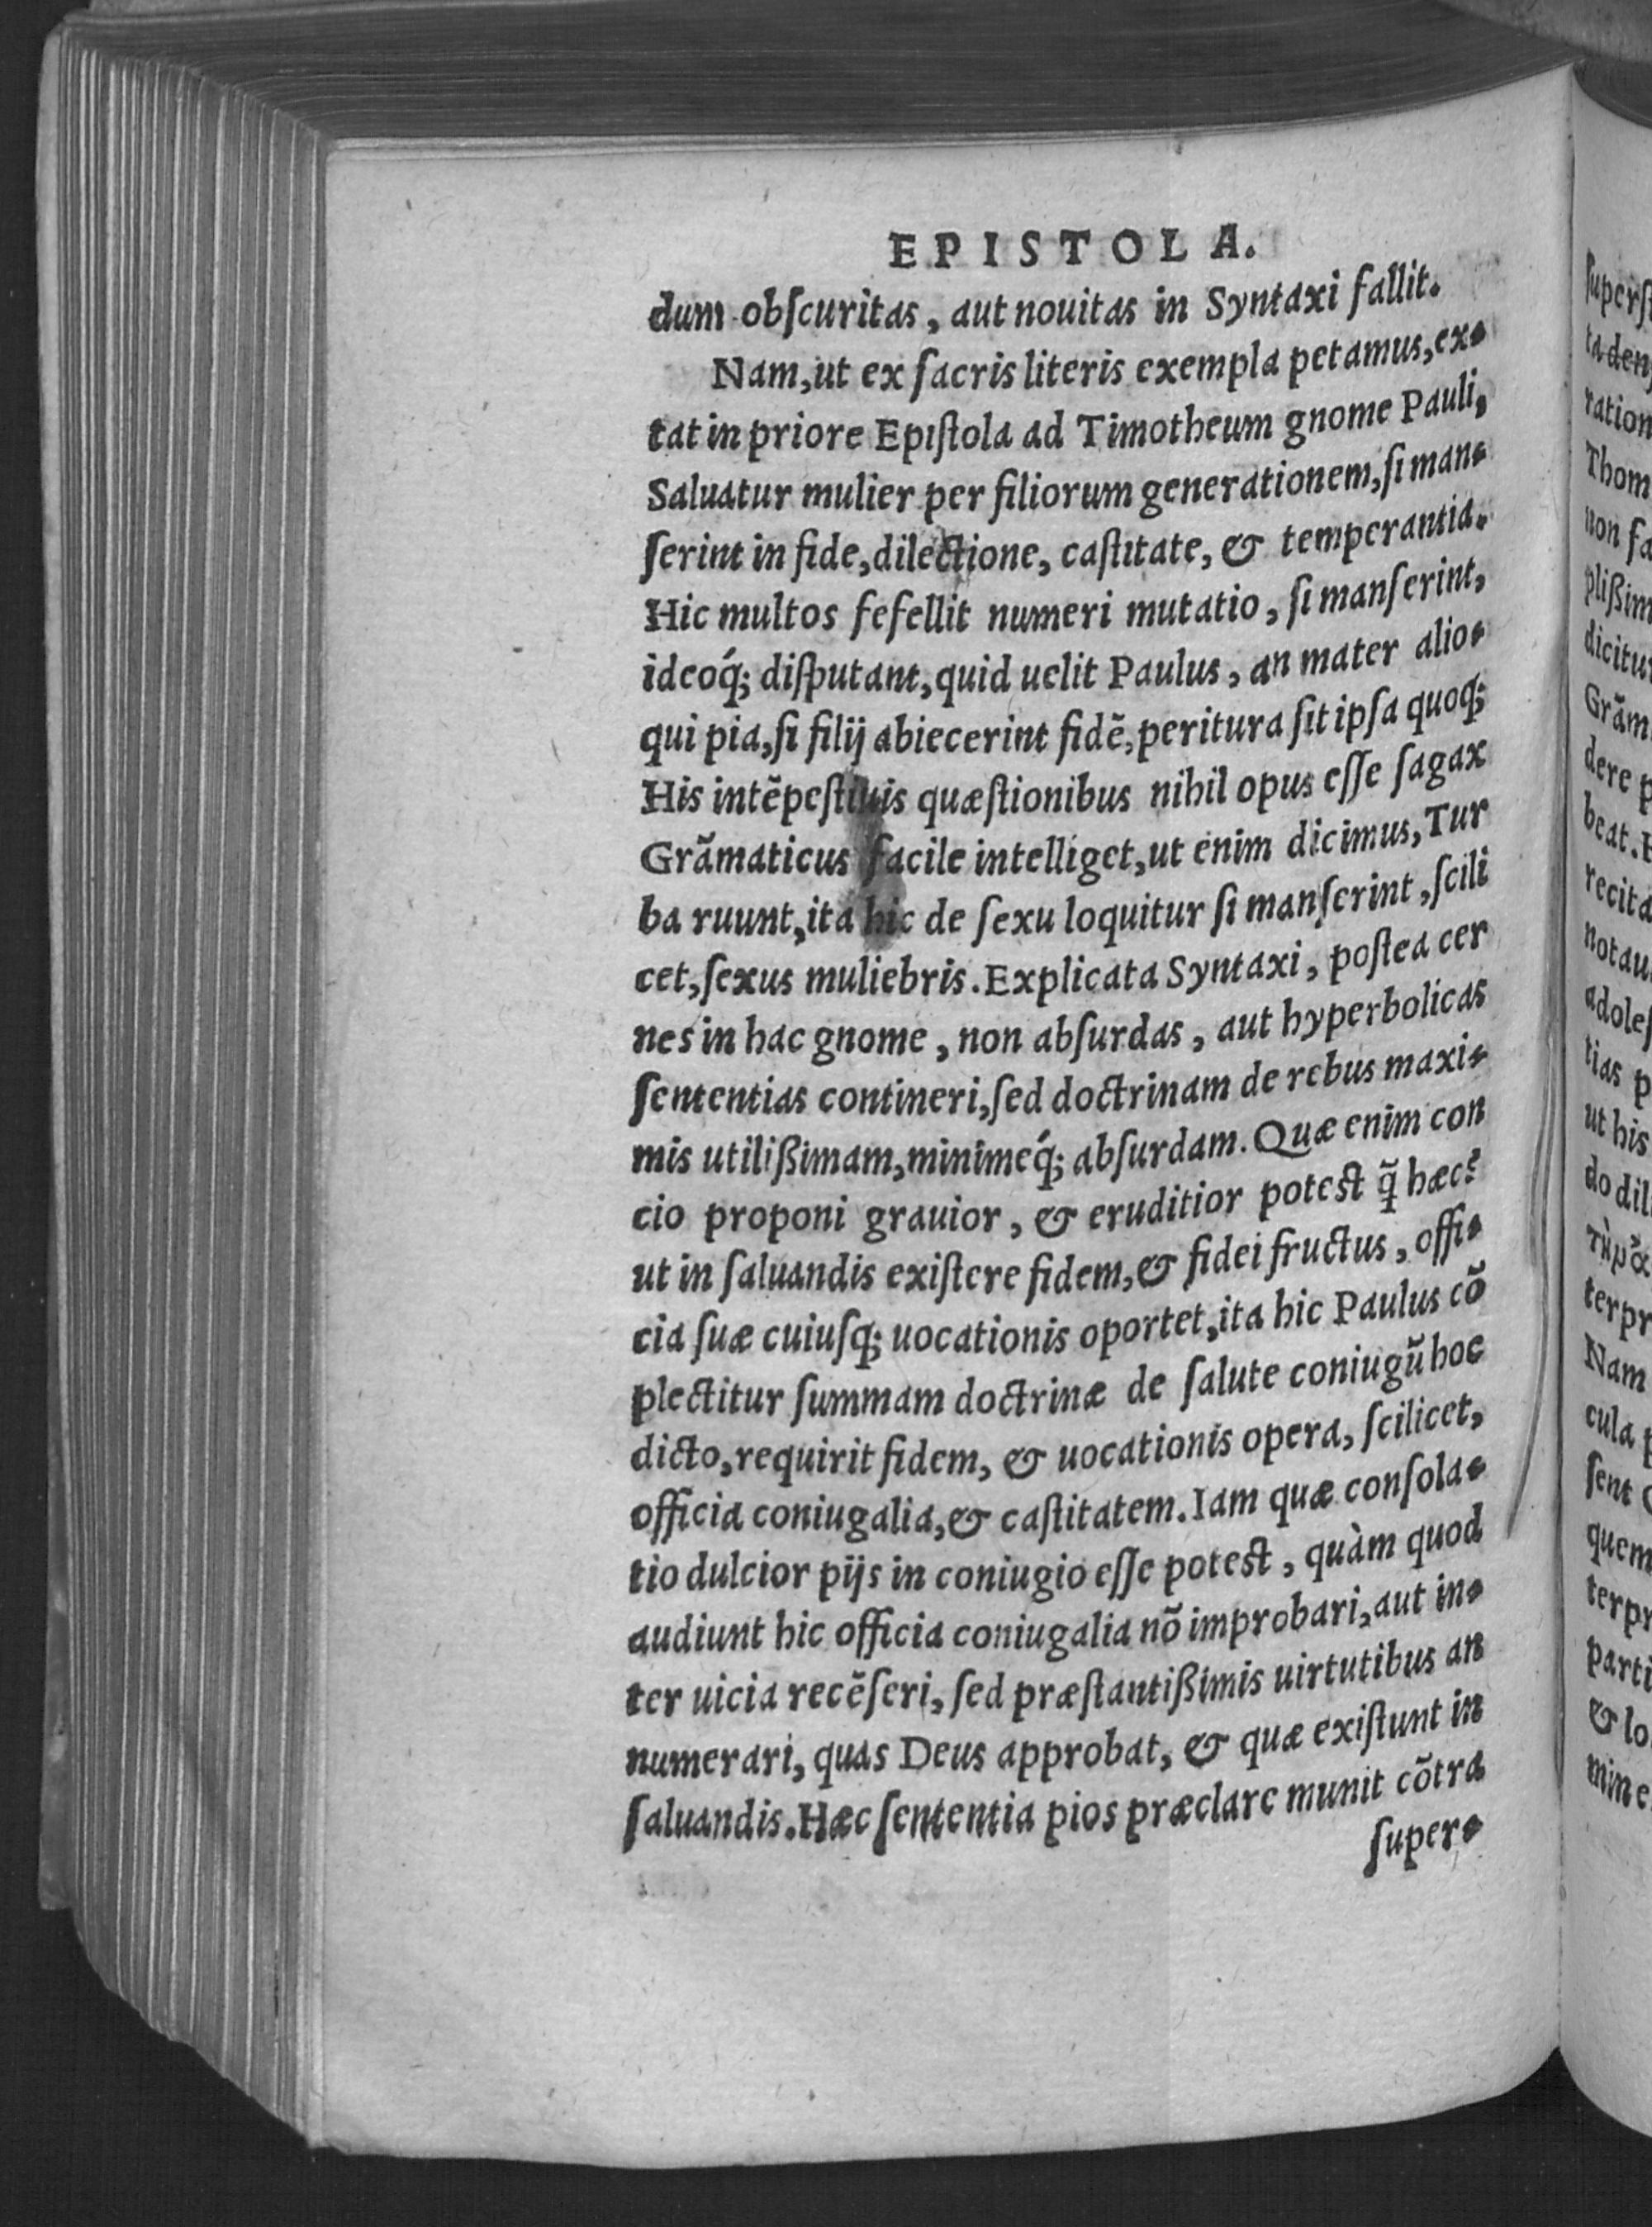 EPISTOLA.
dum obſcuritas, aut nouitas in Syntaxi fallit.
Nam, ut ex ſacris literis exempla petamus, ex-
tat in priore Epiſtola ad Timotheum gnome Pauli,
Saluatur mulier per filiorum generationem, ſi man-
ſerint in fide, dilectione, caſtitate, & temperantia.
Hic multos fefellit numeri mutatio, ſi manſerint,
ideoq́; diſputant, quid uelit Paulus, an mater alio-
qui pia, ſi filij abiecerint fidẽ, peritura ſit ipſa quoq;
His intẽpeſtiuis quæſtionibus nihil opus eſſe ſagax
Grãmaticus facile intelliget, ut enim dicimus, Tur
ba ruunt, ita hic de ſexu loquitur ſi manſerint, ſcili
cet, ſexus muliebris. Explicata Syntaxi, poſtea cer
nes in hac gnome, non abſurdas, aut hyperbolicas
ſententias contineri, ſed doctrinam de rebus maxi-
mis utilißimam, minimeq́; abſurdam. Quæ enim con
cio proponi grauior, & eruditior potest q̃ hæc?
ut in ſaluandis exiſtere fidem, & fidei fructus, offi-
cia ſuæ cuiuſq; uocationis oportet, ita hic Paulus cõ
plectitur ſummam doctrinæ de ſalute coniugũ hoc
dicto, requirit fidem, & uocationis opera, ſcilicet,
officia coniugalia, & caſtitatem. Iam quæ conſola-
tio dulcior pijs in coniugio eſſe potest, quàm quod
audiunt hic officia coniugalia nõ improbari, aut in-
ter uicia recẽſeri, ſed præſtantißimis uirtutibus an
numerari, quas Deus approbat, & quæ exiſtunt in
ſaluandis. Hæc ſententia pios præclare munit cõtra
ſuper-